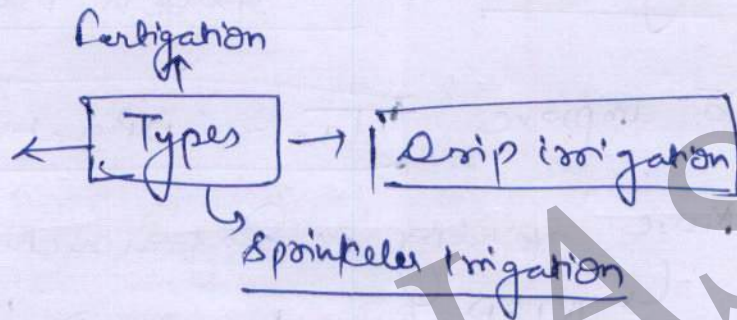 Fertigation
Types
Drip irrigation
Sprinkeler Irrigation
IAS